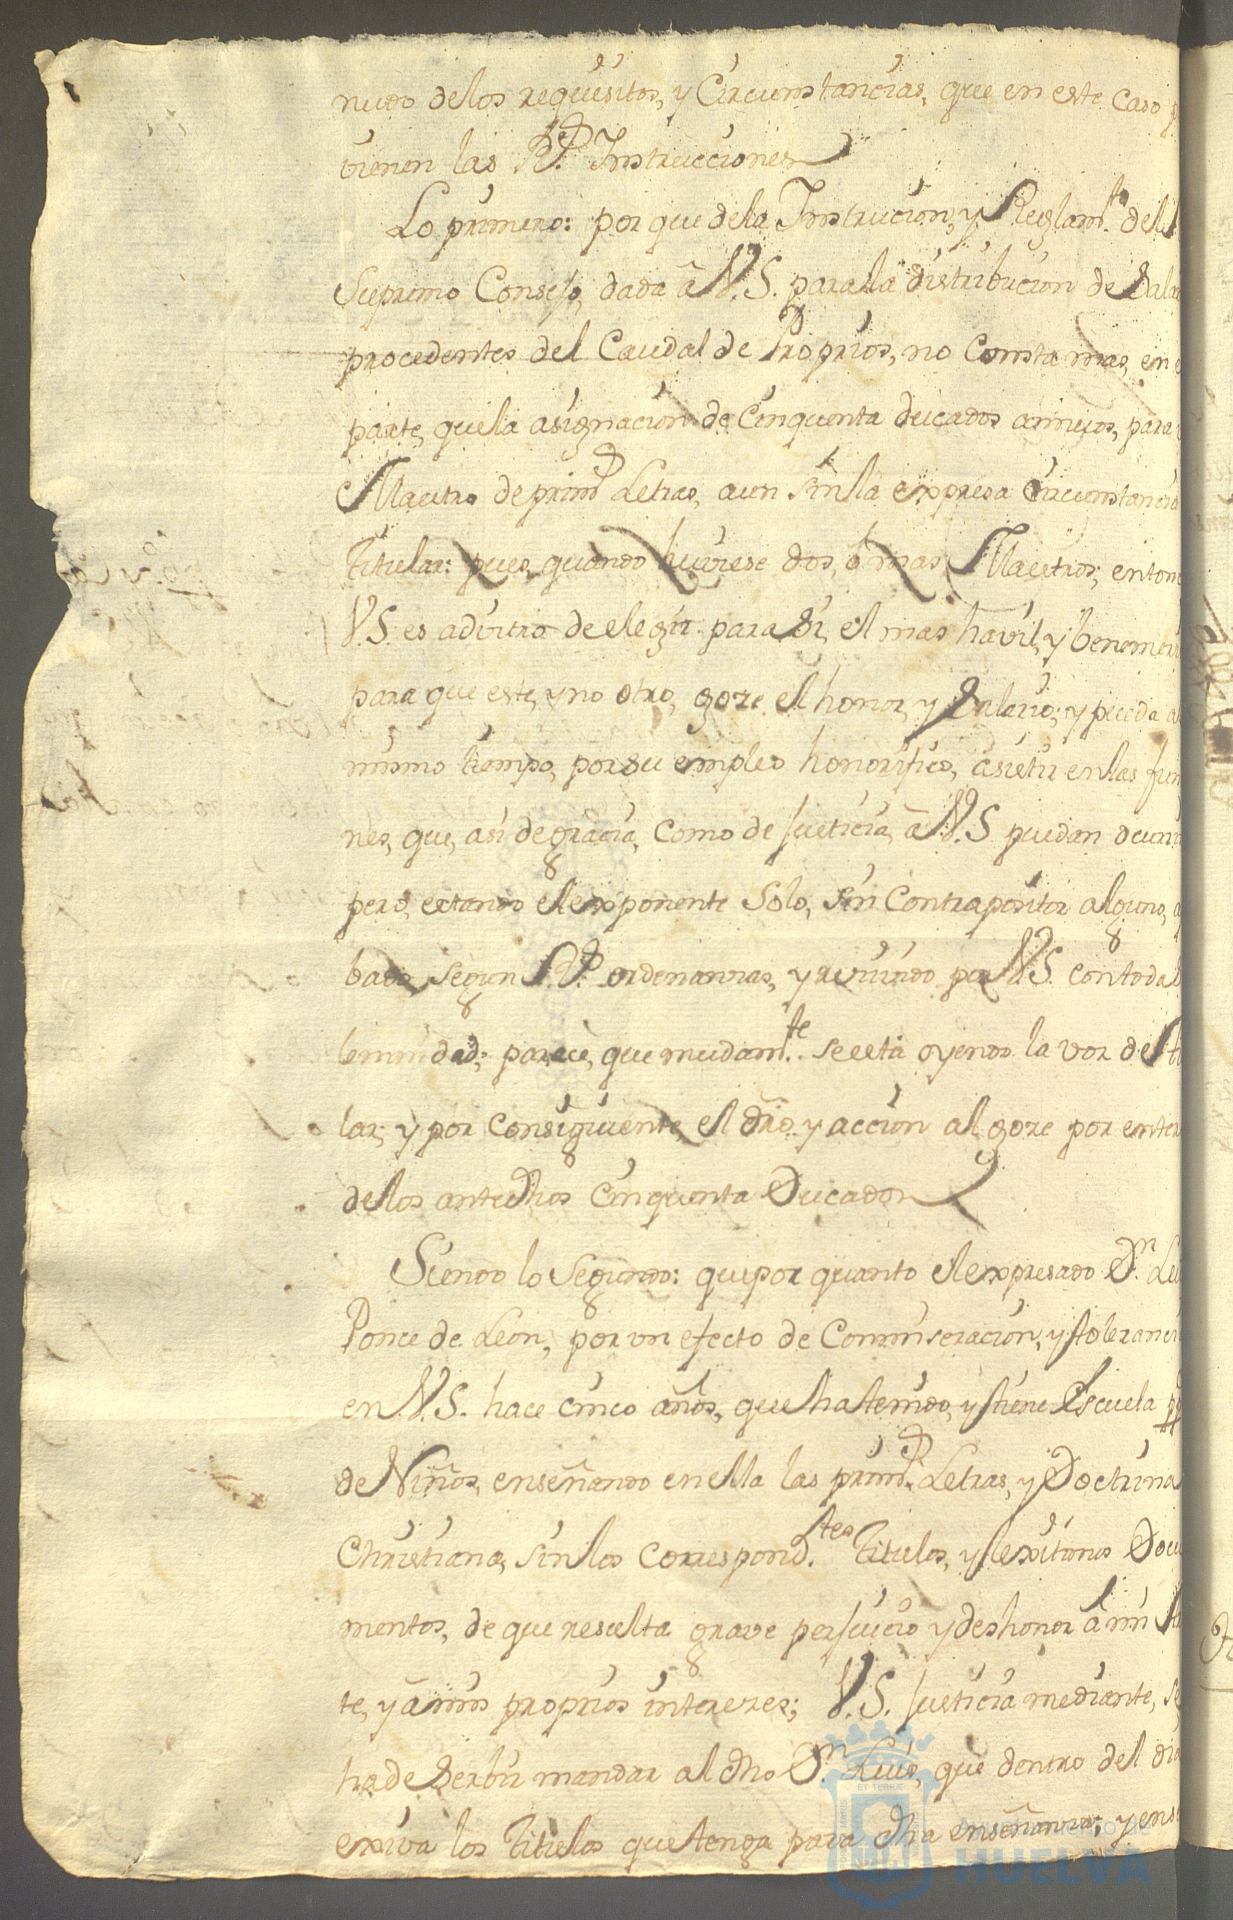 nudo delos requisitos, y Circunstancias, que en este caso
tienen las R.^s Instrucciones
Lo primero: por que dela Instrucion, y Reglam.^to del
Supremo Consejo, dada â V.S. para la distribucion de
procedentes del Caudal de Proprios, no consta mas, en
parte, que la asignacion de Cinquenta ducados annuos, para
Maestro de prim.^s Letras, aun sin la expresa circunstancia
Titular: pues, quando huviese dos, ô mas Maestros; enton
V.S. es advitro de elegir para si, el mas havil, y benemeri
para que este, y no otro, goze el honor, y Salario; y pueda
mismo tiempo, por su empleo honorifico, asistir en las fun
nes, que, asi de gracia, como de Justicia, â V.S puedan ocurri
pero, estando el exponente Solo, sin Contrapositor alguno,
bado segun R.^s ordenanzas, y recivido por V.S. con toda
lemnidad; parece, que mudam.^te se està oyendo la voz de
lar; y por consiguiente, el dro. y accion al goze por enter
de los antedhos Cinquenta Ducados
Siendo lo Segundo: que por quanto el expresado D.^n
Ponce de Leon, por un efecto de Conmiseracion, y toleranci
en V.S. hace cinco años, que ha tenido, y tiene Escuela
de Niños, enseñando en ella las prim.^s Letras, y Doctrina
Christiana, sin los correspond.^tes Titulos, y lexitimos Docu
mentos, de que resulta grave perjuicio y deshonor â mi
te, y â mis proprios intereses; V.S. Justicia mediante, se
ha de Servir mandar al dho D.^n Luis, que dentro del dia
exiva los Titulos que tenga para dha enseñanza; y en
Ayuntamiento de
HUELVA